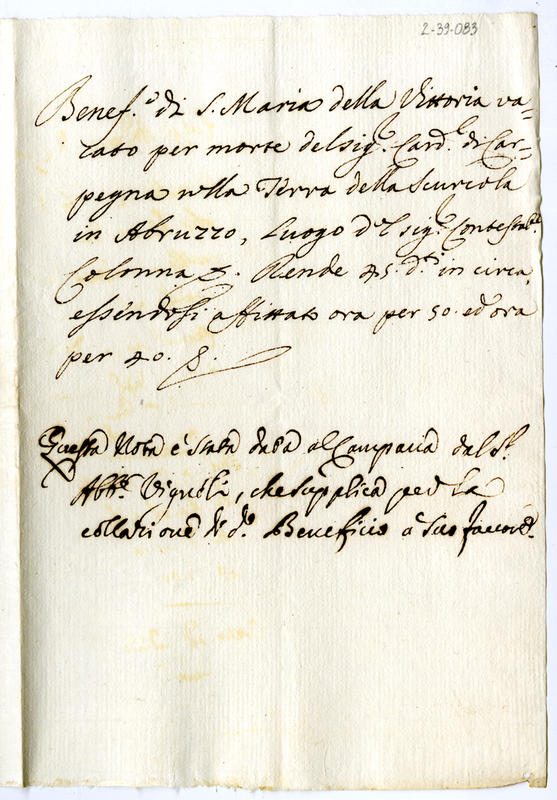 2-39-083
Benef.º di S. Maria della Vittoria va=
cato per morte del sig.r Card.le di Car=
pegna nella Terra della Scurcola
in Abruzzo, Luogo del sig.r Contestab.le
Colonna &. Rende 45. d.ti in circa,
essendosi affittato ora per 50. ed ora
per 40. &.
Questa Nota è stata data al Campana dal S.r
Abb.e Vignoli, che supplica per la
collazione di d.o Beneficio a suo favore.